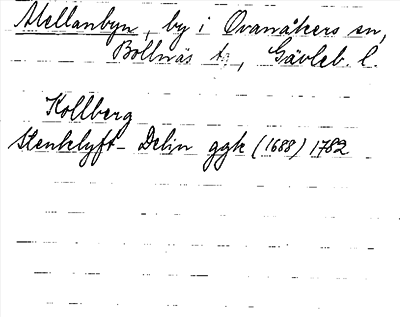 Mellanbyn, by i Ovanåkers sn,
Bollnäs t:, Gävleb. l.
Kollberg
Stenklyft - Delin ggk (1688) 1782